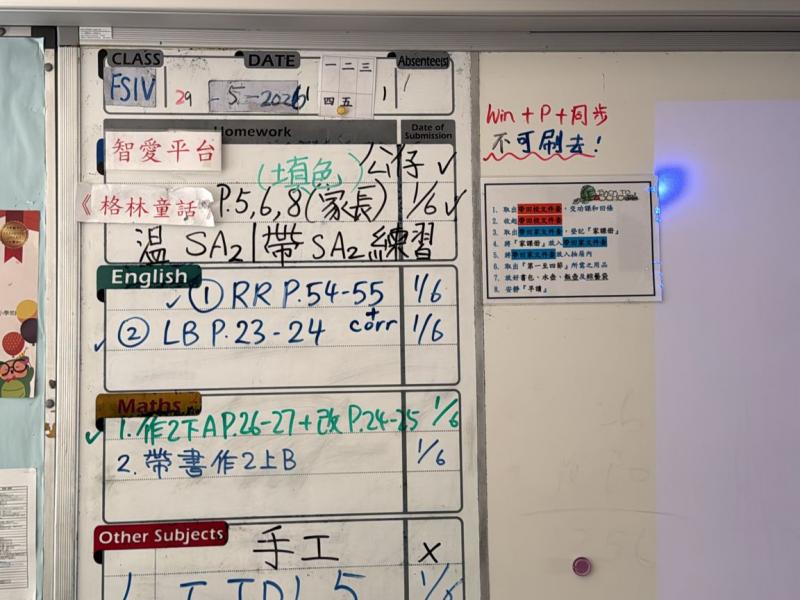 CLASS DATE Absentee(s)
FSIV 29 - 5 - 2026 1
一 二 三
四 五
Homework Date of Submission
智愛平台 (填色) 公仔 ✓
《格林童話 P.5,6,8(家長) 1/6 ✓
溫 SA2 | 帶 SA2 練習
English
✓ ① RR P.54-55 1/6
✓ ② LB P.23-24 + corr 1/6
Maths
✓ 1. 作2下A P.26-27 + 改 P.24-25 1/6
2. 帶書作2上B 1/6
Other Subjects
手工 x
Win + P + 同步
不可刷去!
BACK TO SCHOOL
1. 取出學回校文件套,交功課和回條
2. 收起學回校文件套
3. 取出學回家文件套,登記『家課冊』
4. 將『家課冊』放入學回家文件套
5. 將學回家文件套放入抽屜內
6. 取出『第一至四節』所需之用品
7. 放好書包、水壺、飯壺及綜藝袋
8. 安靜『早讀』